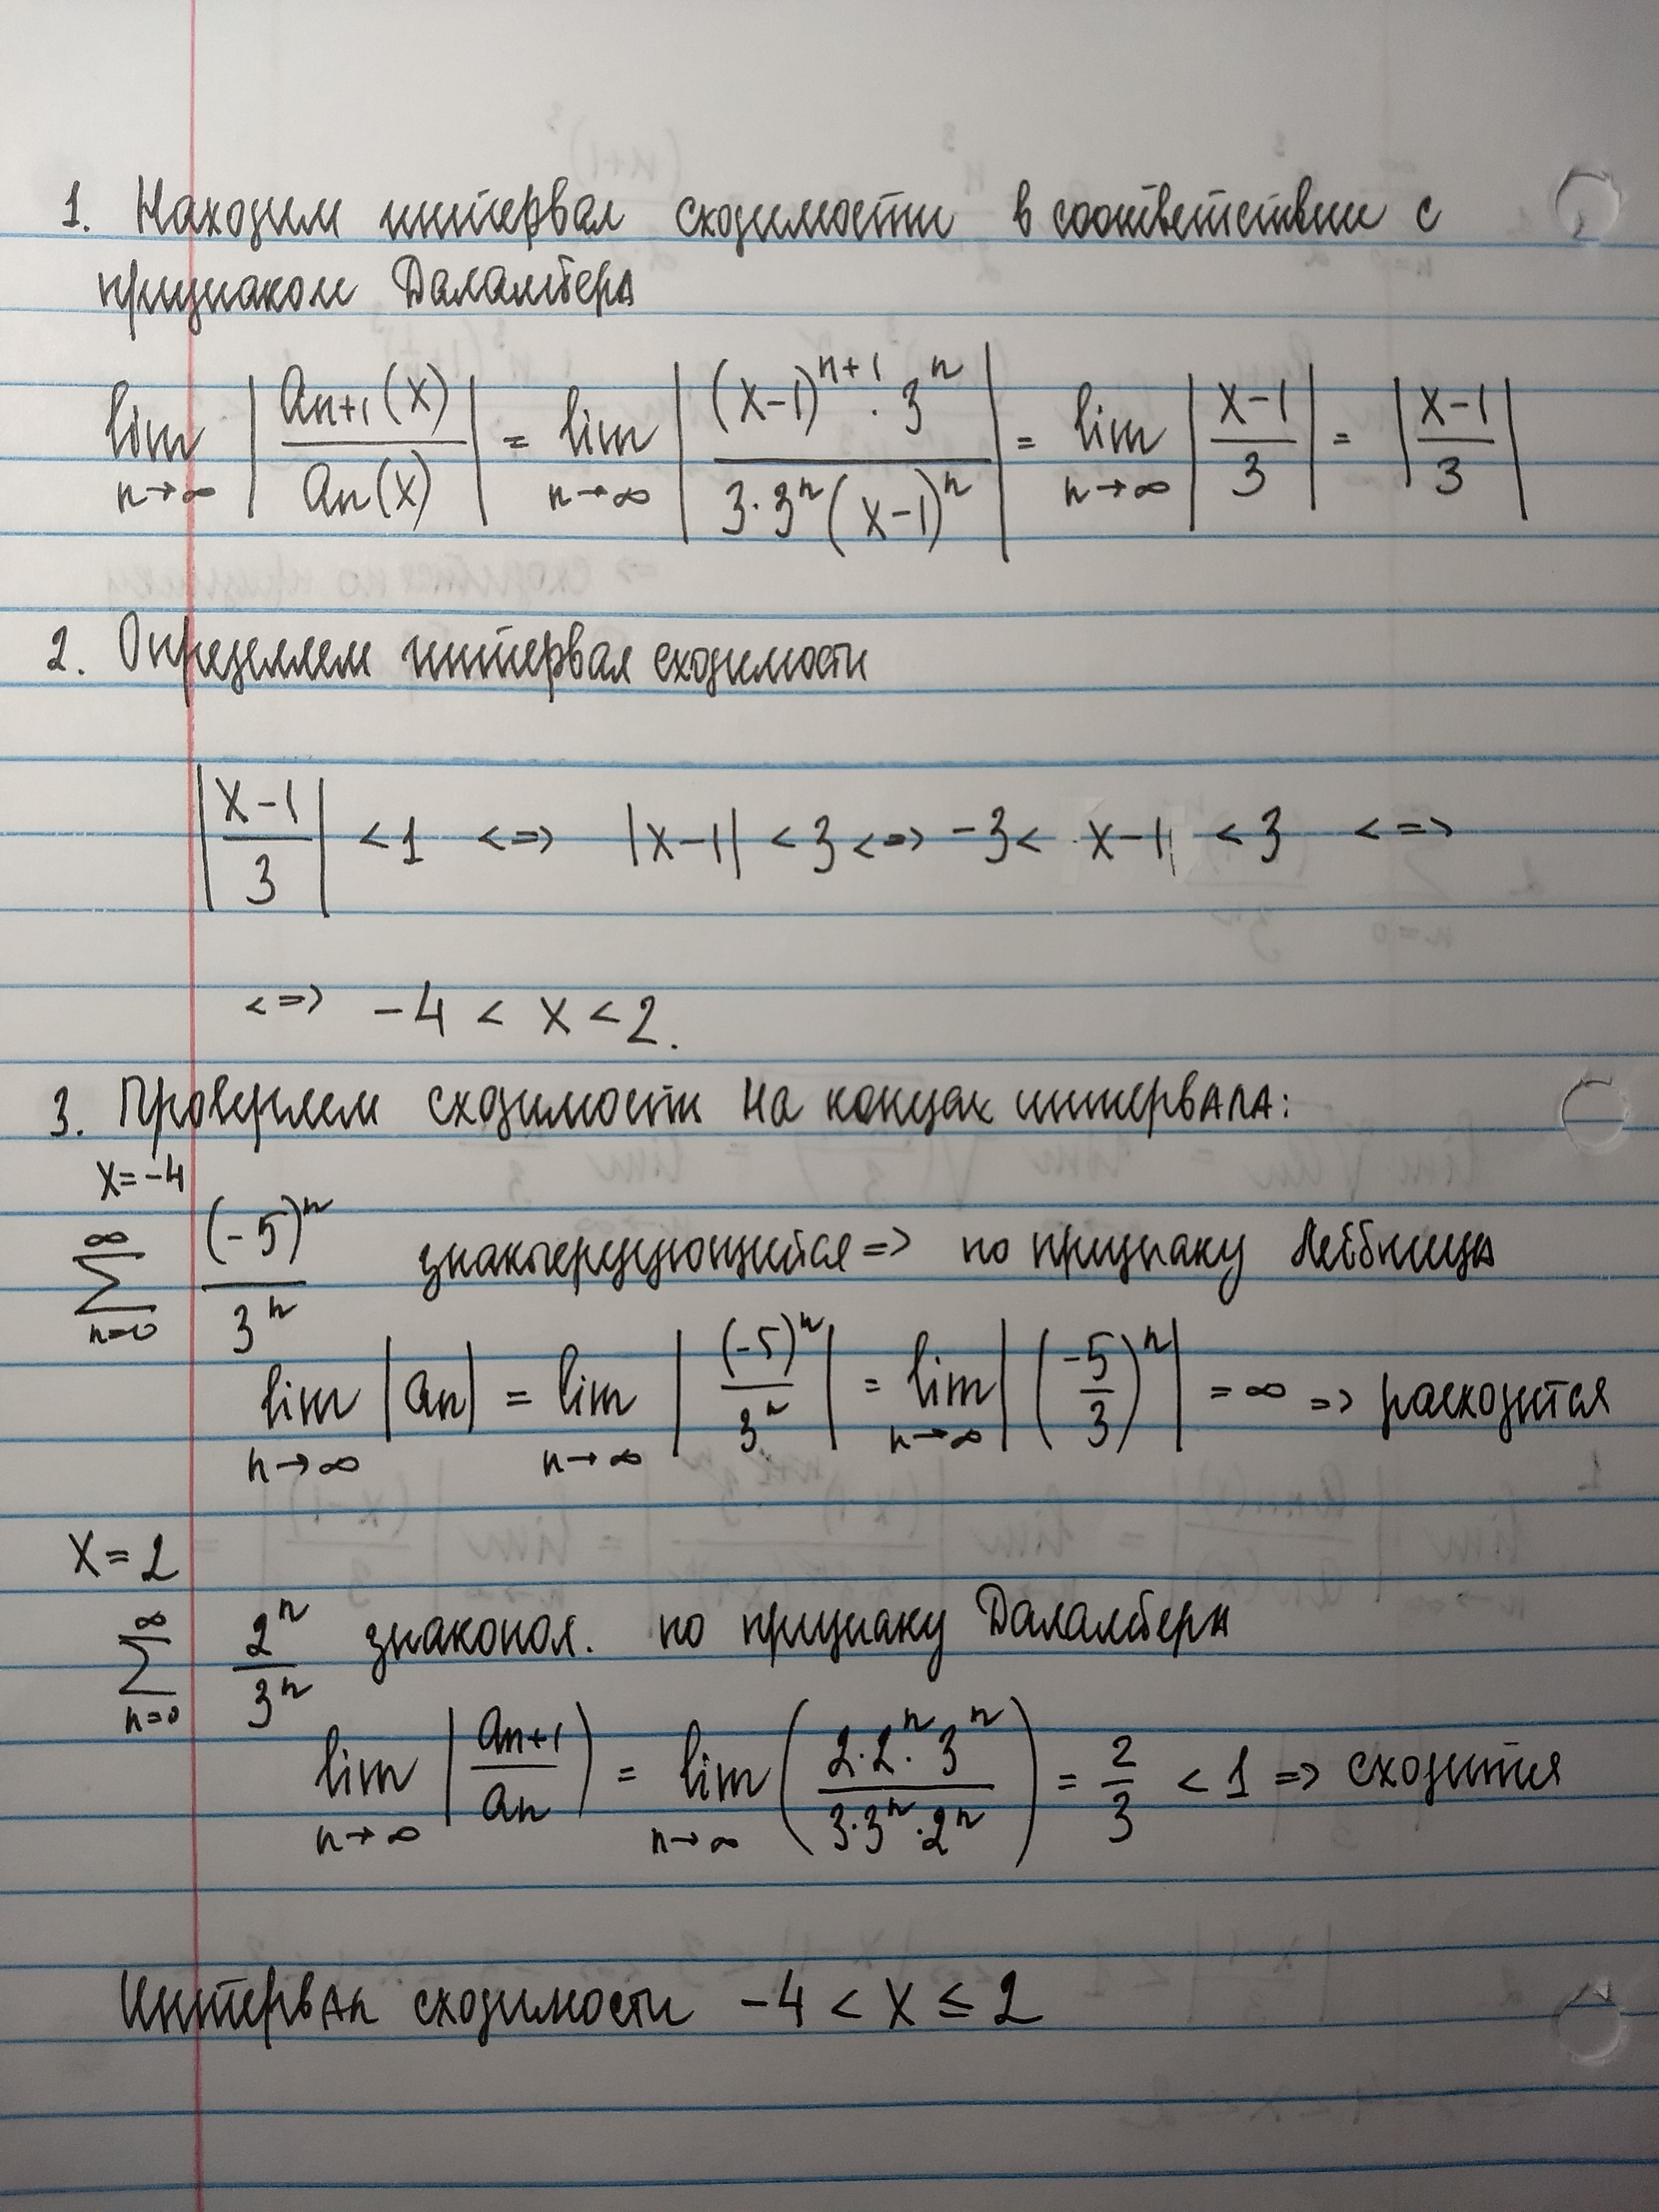 1. Находим интервал сходимости в соответствии с
признаком Даламбера
lim n→∞ |an+1(x)/an(x)| = lim n→∞ |(x-1)^(n+1) · 3^n / 3·3^n(x-1)^n| = lim n→∞ |x-1/3| = |x-1/3|
2. Определяем интервал сходимости
|x-1/3| < 1 <=> |x-1| < 3 <=> -3 < x-1 < 3 <=>
<=> -4 < x < 2.
3. Проверяем сходимость на концах интервала:
x=-4
∞ ∑ n=0 (-5)^n/3^n знакочередующийся => по признаку Лейбница
lim n→∞ |an| = lim n→∞ |(-5)^n/3^n| = lim n→∞ |(-5/3)^n| = ∞ => расходится
x=2
∞ ∑ n=0 2^n/3^n знакопол. по признаку Даламбера
lim n→∞ |an+1/an) = lim n→∞ (2·2^n·3^n/3·3^n·2^n) = 2/3 < 1 => сходится
Интервал сходимости -4 < x ≤ 2